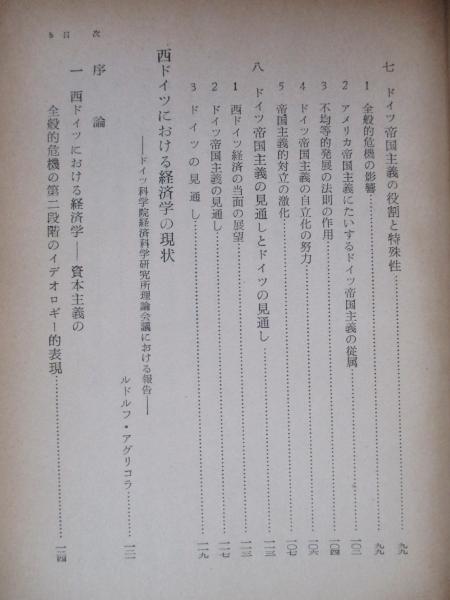 目次 5
七 ドイツ帝国主義の役割と特殊性……九九
1 全般的危機の影響……九九
2 アメリカ帝国主義にたいするドイツ帝国主義の従属……一〇二
3 不均等的発展の法則の作用……一〇四
4 ドイツ帝国主義の自立化の努力……一〇六
5 帝国主義的対立の激化……一〇七
八 ドイツ帝国主義の見通しとドイツの見通し……一一三
1 西ドイツ経済の当面の展望……一一三
2 ドイツ帝国主義の見通し……一一七
3 ドイツの見通し……一一九
西ドイツにおける経済学の現状
――ドイツ科学院経済科学研究所理論会議における報告――
ルドルフ・アグリコラ……一二一
序論
一 西ドイツにおける経済学――資本主義の
全般的危機の第二段階のイデオロギー的表現……一二四